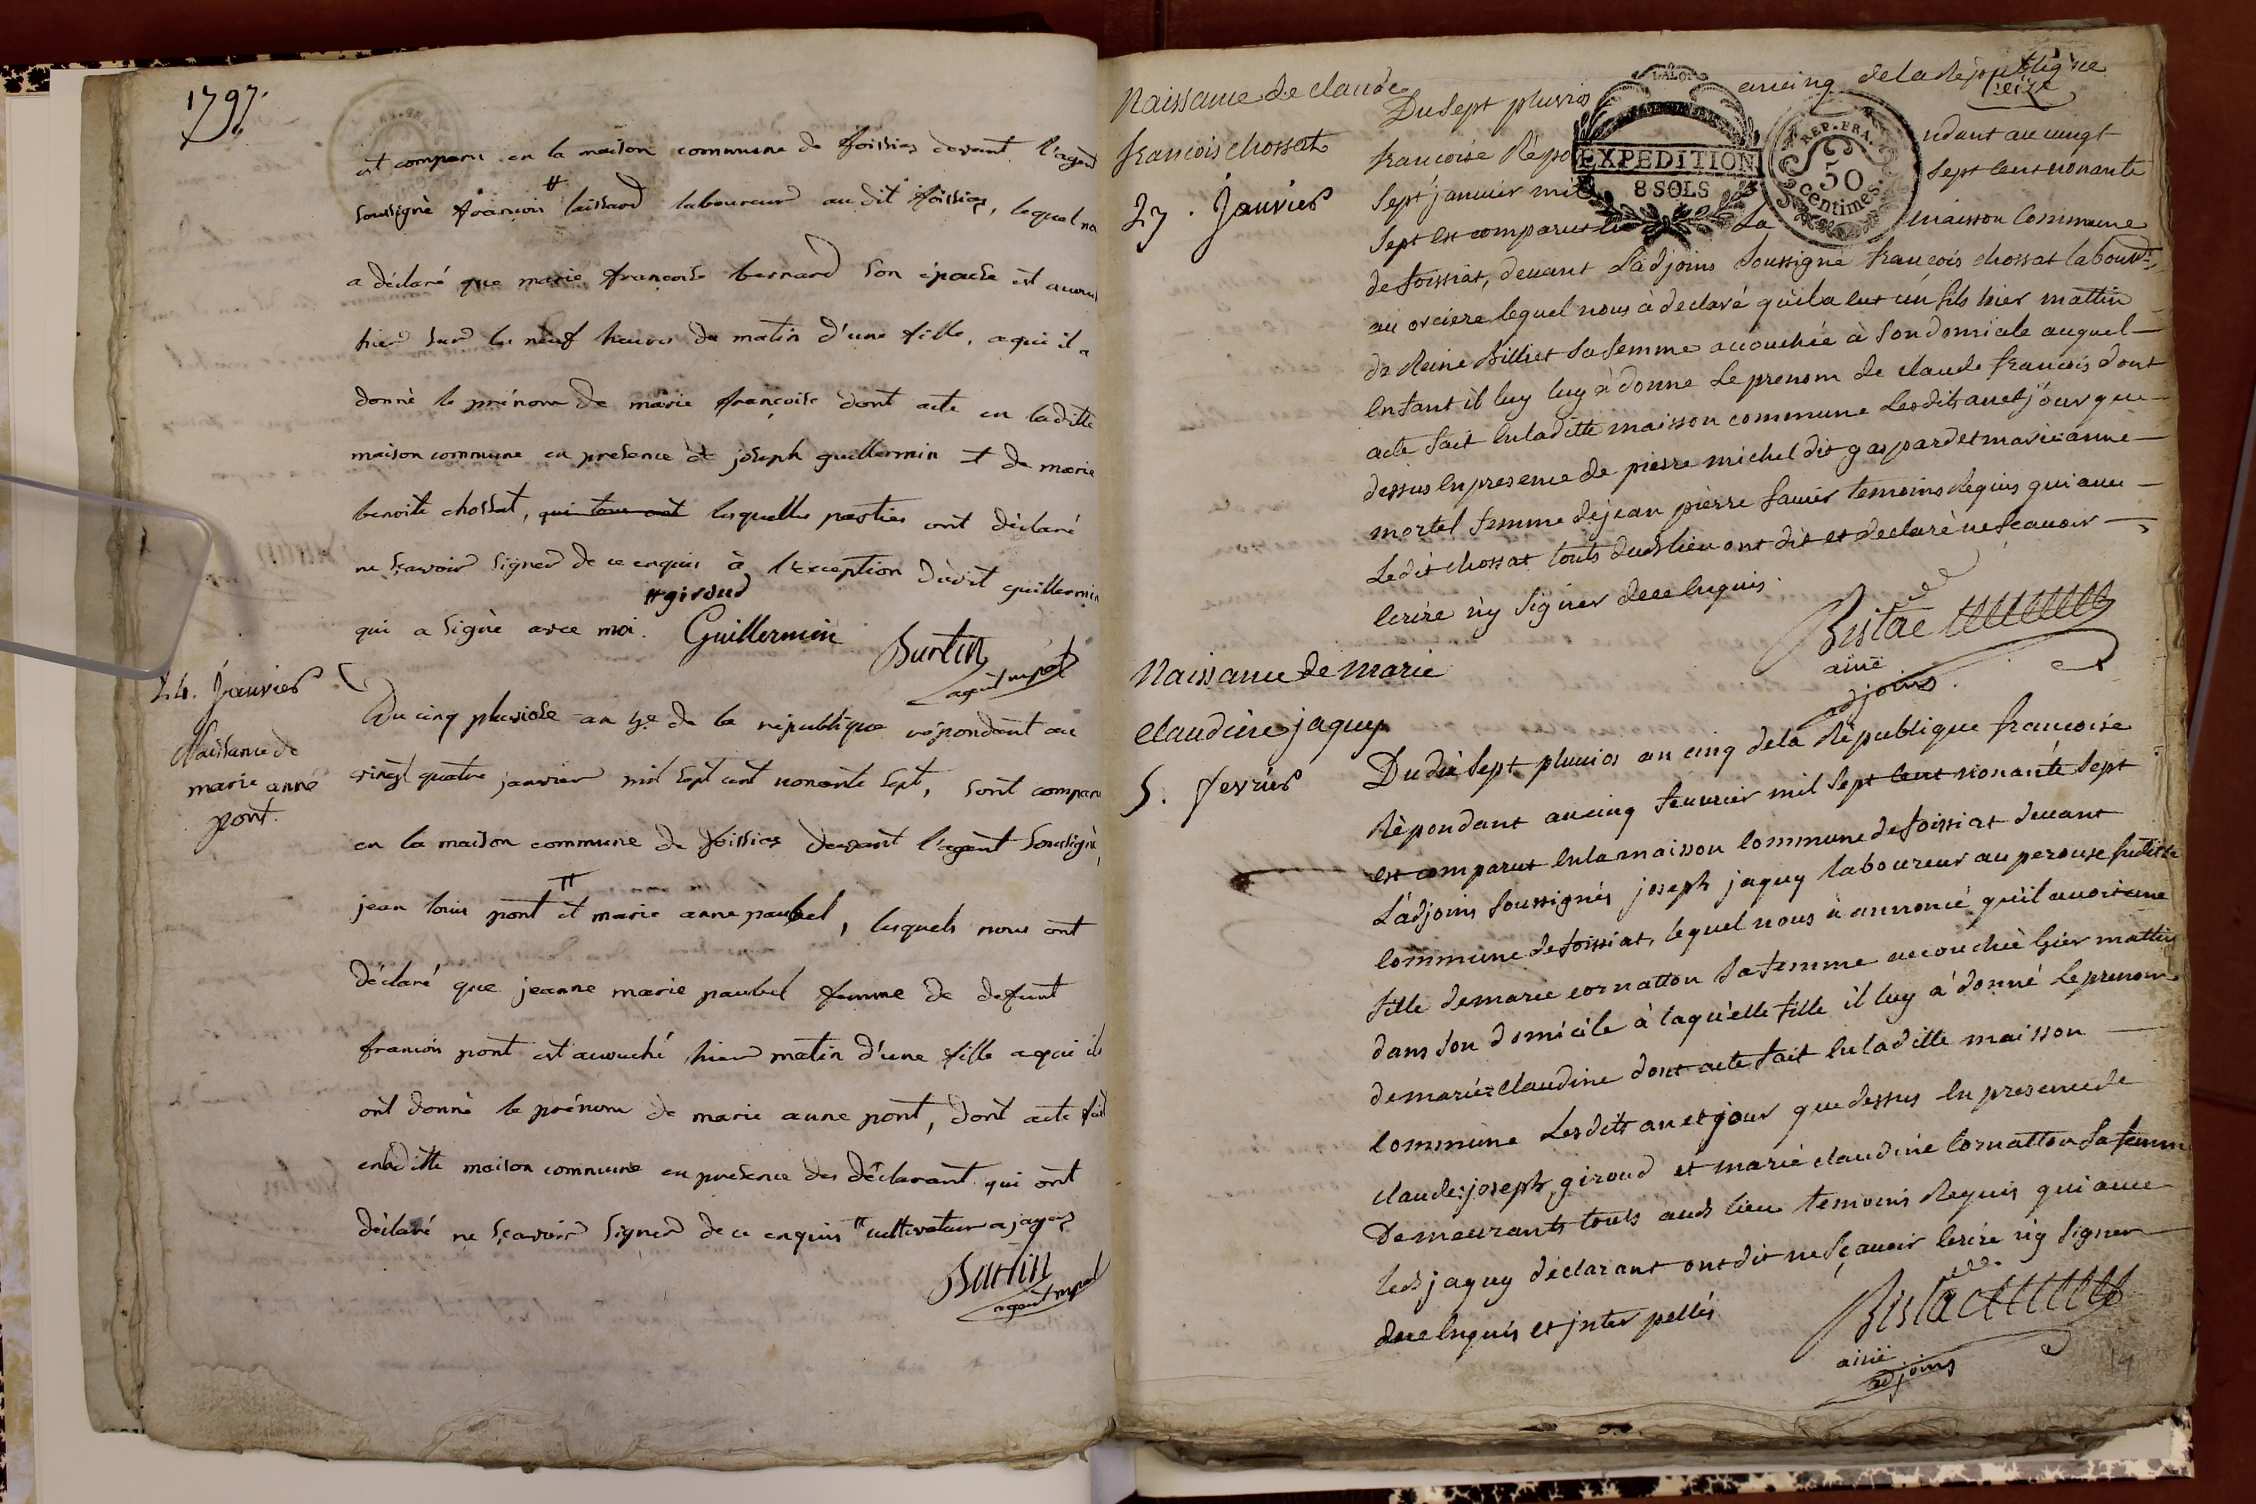 1797.
est comparu en la maison commune de foissias devant l'agent
soussigné francois # laissard laboureur au dit foissias, lequel na
a déclaré que marie francoise bernard son épouse est accou
hier sur les neuf heures du matin d'une fille, a qui il a
donné le prénom de marie françoise dont acte en laditte
maison commune en presence de joseph guillermin et de marie
benoite chossat, qui tous ont lesquelles parties ont déclaré
ne sçavoir signer de ce enquis à l'exception dudit guillermin
# giroud
qui a signé avec moi. Guillermin
Burtin
agent mpal
24. Janvier
Naissance de
marie anne
pont.
Du cinq pluviose an 5e. de la république répondant au
vingt quatre janvier mil sept cent nonante sept, sont comparu
en la maison commune de foissias devant l'agent soussigné,
jean louis pont # et marie anne paubel, lesquels nous ont
déclaré que jeanne marie paubel femme de defunt
francois pont est accouché hier matin d'une fille a qui ils
ont donné le prénom de marie anne pont, dont acte fait
enladitte maison commune en presence des déclarant qui ont
déclaré ne sçavoir signer de ce enquis # cultivateur a jayas
Burtin
agent mpal
Naissance de claude
francois chossat
27. Janvier
Du sept pluvios an cinq de la Republique
treize
francoise Répo ndant au vingt
sept janvier mil sept cent nonante
EXPEDITION
8 SOLS
REP. FRA.
50
centimes.
sept est comparut en La maisson Commune
de foissiat, devant L'adjoins soussigné francois chossat labourr.
au orciere lequel nous à declaré qu'il a eut un fils hier mattin
de Reine Billiet sa femme accouchée à son domicile auquel
enfant il luy luy à donne Le prenom de claude francois dont
acte fait enladitte maisson commune Lesdits anetjour que
dessus en presence de pierre michel dit gaspard et marieanne
mortel femme dejean pierre favier temoins Requis qui avec
Ledit chossat touts dud lieu ont dit et declaré ne scavoir
Ecrire n'y signer dece Enquis.
Bistac
ainé
adjoins.
Naissance de marie
claudine jaquy
5. fevrier
Du dix sept pluvios an cinq dela République francoise
Répondant aucinq fevurier mil sept cent nonante sept
est comparut enla maisson Commune de foissiat devant
L'adjoins soussignés joseph jaquy laboureur au perouse
Commune de foissiat, lequel nous à annoncé qu'il avoit une
fille demarie cornatton sa femme accouchée hier mattin
dans son domicile à laquelle fille il luy à donné Le prenom
demarie claudine dont acte fait enladitte maisson
Commune Lesdits anetjour que dessus en presence de
claude joseph giroud et marie claudine Cornatton sa femme
Demeurants touts aud. lieu temoins Requis qui avec
led. jaquy déclarant ont dit ne sçavoir Ecrire n'y signer
dece Enquis et jnter pellés
Bistac
ainé
adjoins